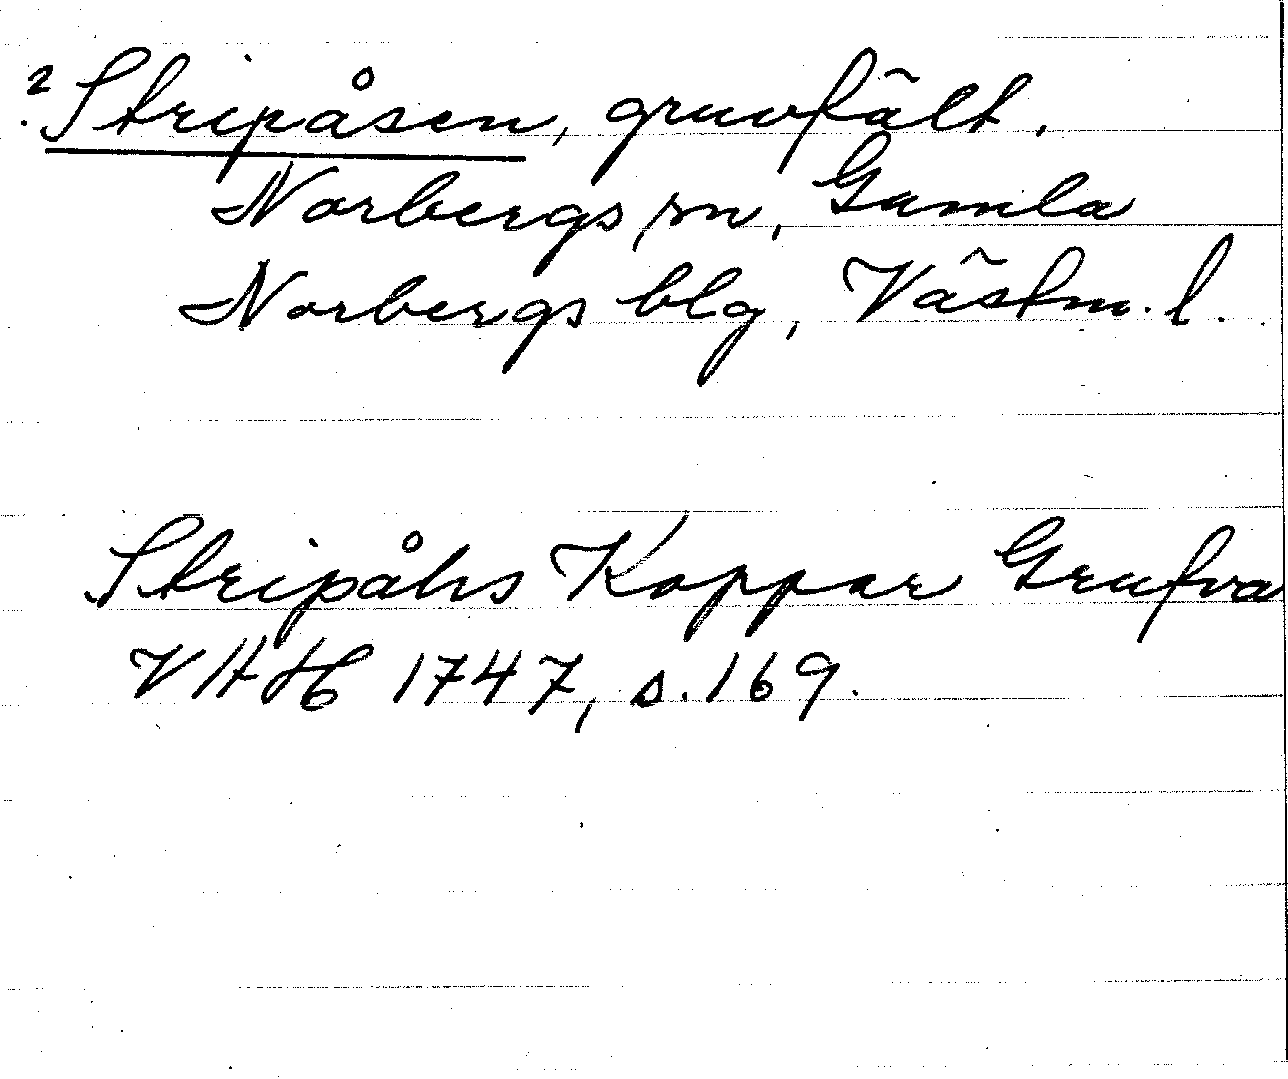 ? Stripåsen, gruvfält.
Norbergs sn, Gamla
Norbergs blg, Västm. l.
Stripåhs Koppar Grufva
VHH 1747, s. 169.